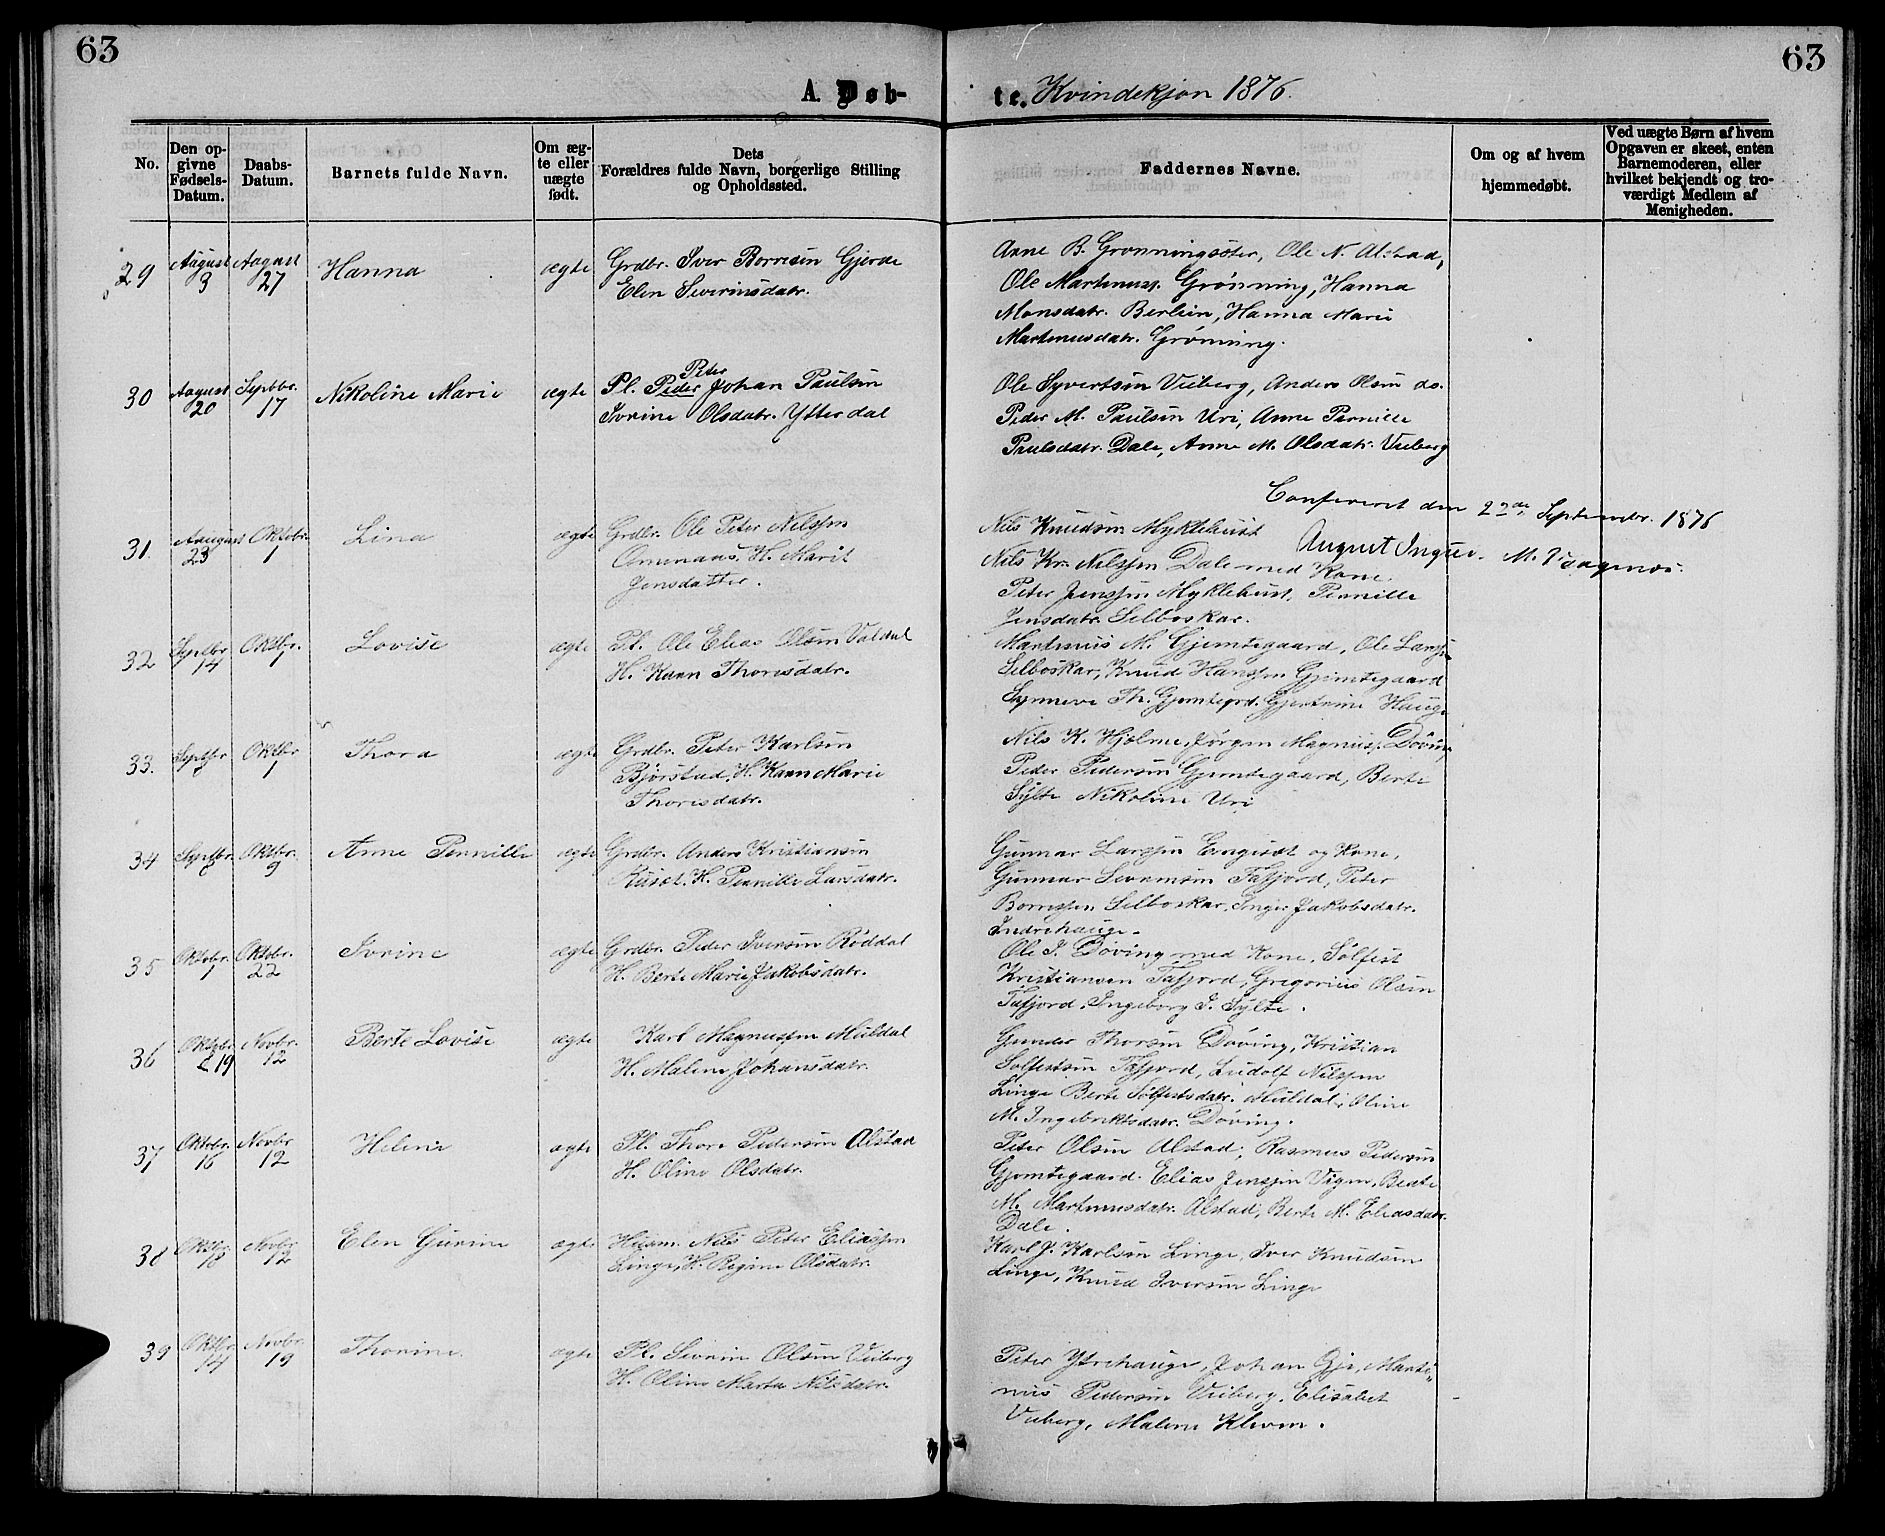 63
63
A. Døb-
te. Kvindekjøn 1876.
No.
Den op-
givne
Fødsels-
Datum.
Daabs-
Datum.
Barnets fulde Navn.
Om æg-
te eller
uægte
født.
Dets
Forældres fulde Navn, borgerlige Stilling
og Opholdssted.
Faddernes Navne.
Om og af hvem
hjemmedøbt.
Ved uægte Børn af hvem
Opgaven er skeet, enten
Barnemoderen, eller
hvilket bekjendt og tro-
værdigt Medlem af
Menigheden.
29 August 3 August 27 Hanna ægte Grdbr. Iver Borresen Gjerde
Elen Severinsdatr.
Anne B. Grønningsæter, Ole N. Alstad,
Ole Martinuss. Grønning, Hanna
Monsdatr. Berlien, Hanna Marie
Martinusdatr. Grønning.
30 August 20 Septbr. 17 Nikoline Marie ægte Pl. Peder Johan Paulsen
Peter
Ivrine Olsdatr. Ytterdal
Ole Syvertsen Viiberg, Anders Olsen do.
Peder M. Paulsen Uri, Anne Pernille
Paulsdatr. Dale, Anne M. Olsdatr. Viiberg
Confereret den 22de Septembr. 1876
August Ingier. M. Vaagenæs.
31. August 23 Oktobr. 1 Lina ægte Grdbr. Ole Peter Nilssen
Omenaas. H. Marit
Jensdatter.
Nils Knudsen Myklebust
Nils Kr. Nilssen Dale med Kone.
Peter Jenssen Myklebust, Pernille
Jensdatr. Selboskar.
32 Septbr. 14 Oktbr. 1 Lovise ægte Pl. Ole Elias Olsen Valdal
H. Karn Thorisdatr.
Martinus M. Gjemtegaard, Ole Larss.
Selboskar, Knud Hanssen Gjemtegaard
Synneve Th. Gjemtegrd. Gjertrine Hauge
33. Septbr Oktbr 1 Thora ægte Grdbr. Peter Karlsen
Bjørstad, H. Karn Marie
Thorisdatr.
Nils K. Hjelme, Jørgen Magnuss. Døving,
Peder Pedersen Gjemtegaard, Berte
Sylte Nikoline Uri
34 Septbr. Oktbr. 9 Anne Pernille ægte Grdbr. Anders Kristiansen
Rusæt. H. Pernille Larsdatr.
Gunnar Larssen Engesæt og Kone,
Gunnar Svensen Tafjord, Peter
Bornssen Selboskar, Inger Jakobsdatr.
Indrehauge.
35 Oktobr. 1 Oktobr. 22 Ivrine ægte Grdbr. Peder Iversen Røddal
H. Berte Marie Jakobsdatr.
Ole I. Døving med Kone, Sølfest
Kristiansen Tafjord, Gregorius Olsen
Tafjord, Ingeborg I. Sylte.
36 Oktobr. 19 Novbr. 12 Berte Lovise ægte Karl Magnussen Muldal
H. Malene Johansdatr.
Gunder Thorsen Døving, Kristian
Solfestsen Tafjord, Ludolf Nilssen
Linge Berte Sølfestsdatr. Muldal, Oline
M. Ingebriktsdatr. Døving.
37 Oktobr. 16 Novbr 12 Helene ægte Pl. Thore Pedersen Alstad
H. Oline Olsdatr.
Peter Olsen Alstad, Rasmus Pedersen
Gjemtegaard. Elias Jenssen Vigen, Beate
M. Martinusdatr. Alstad, Berte M. Eliasdatr.
Dale.
38 Oktbr. 18 Novbr 12 Elen Gurine ægte Husm. Nils Peter Eliassen
Linge, H. Regine Olsdatr.
Karl J. Karlsen Linge, Iver Knudsen
Linge, Knud Iversen Linge
39 Oktbr. 14 Novbr. 19 Thorine ægte Pl. Severin Olsen Viiberg
H. Oline Marta Nilsdatr.
Peter Ytrehauge, Johan Gjr, Marti-
nus Pedersen Viiberg, Elisabet
Viiberg, Malene Kleven.